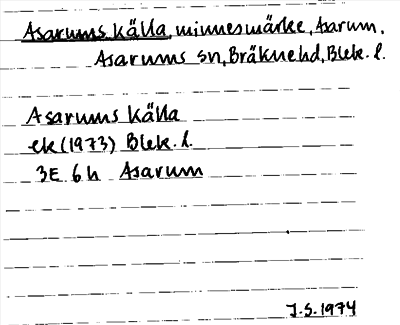 Asarums källa, minnesmärke, Asarum,
Asarums sn, Bräkne hd, Blek. l.
Asarums källa
ek (1973) Blek. l.
3E 6h Asarum
J.S. 1974